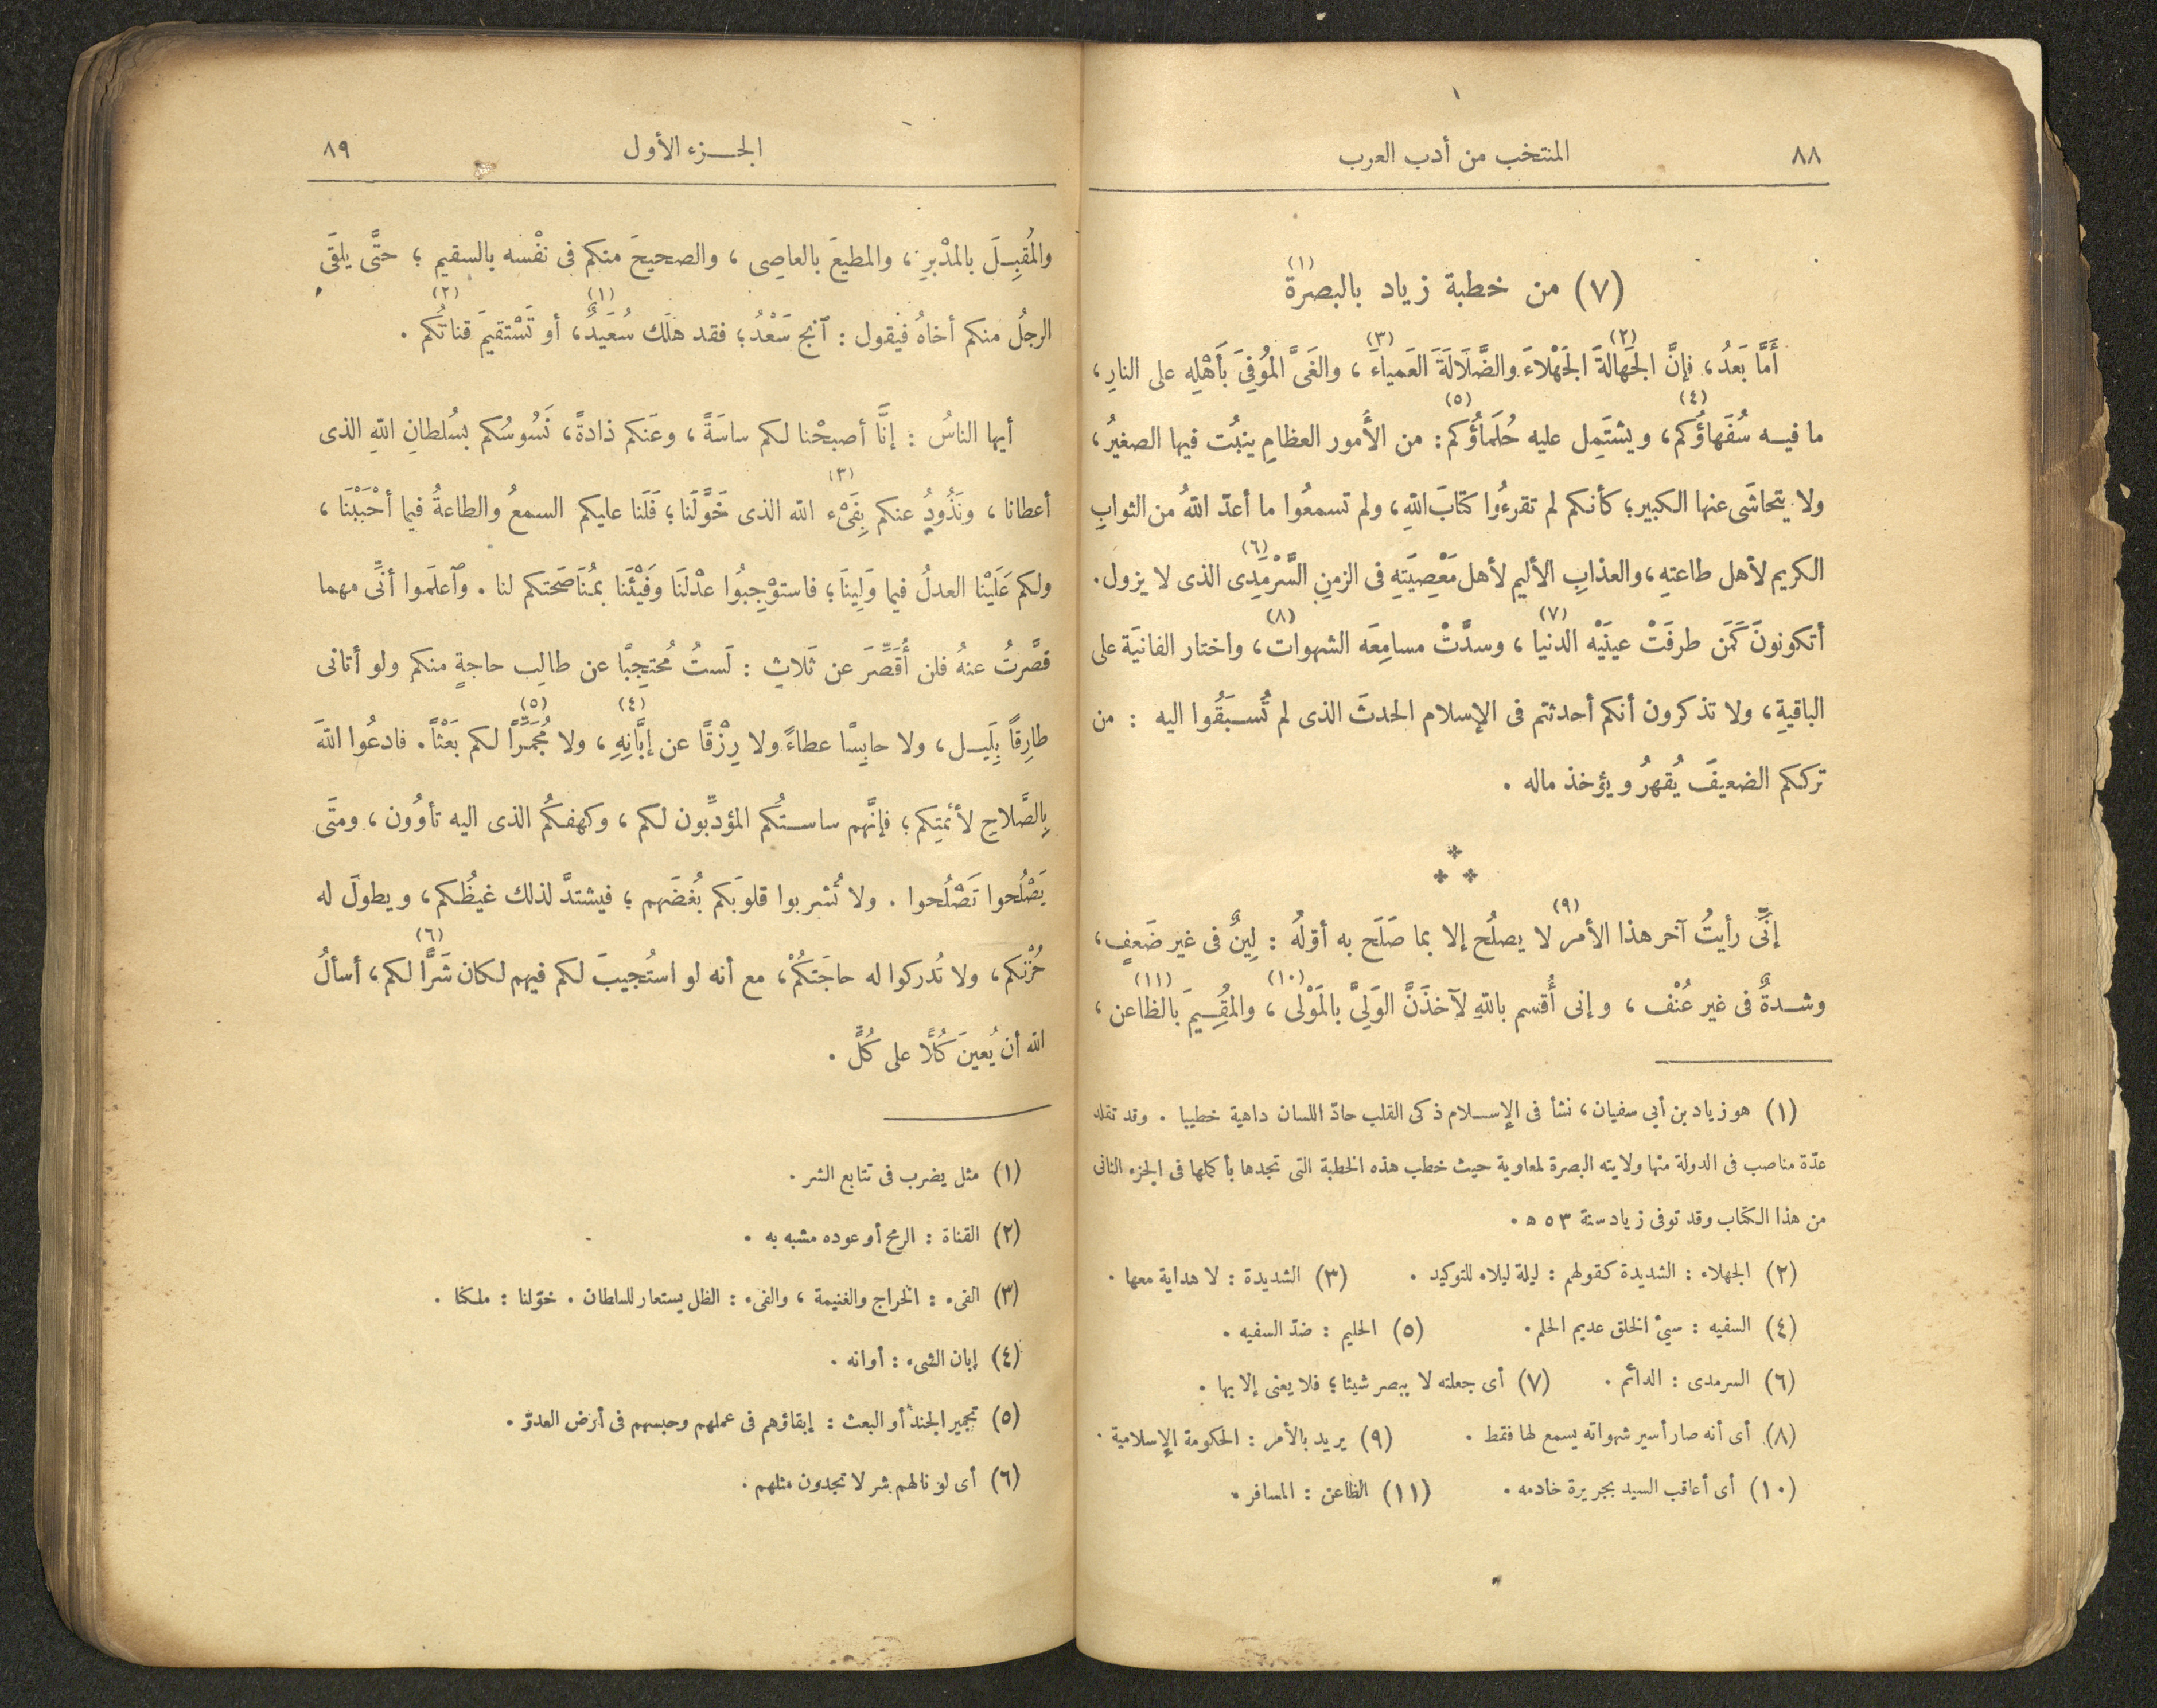 ٨٨
المنتخب من أدب العرب
(٧) من خطبة زياد بالبصرة (١)
أَمَّا بَعدُ، فإنَّ الجَهالةَ الجَهْلاءَ (٢) والضَّلَالَةَ العَمياءَ (٣)، والغَىَّ المُوُفِىَ بَأَهْلِهِ على النارِ،
ما فيه سُفَهاؤُكم (٤)، ويشتَمِل عليه حُلَماؤُكم (٥): من الأُمور العظامِ ينبُت فيها الصغيرُ،
ولا يتحاشَى عنها الكبير؛ كأنكم لم تقرءُوا كتابَ اللهِ، ولم تسمعُوا ما أعدّ اللهُ من الثوابِ
الكريم لأهل طاعتهِ، والعذابِ الأليم لأهل مَعْصِيَتِهِ فى الزمنِ السَّرْمَدِى (٦) الذى لا يزول.
أتكونونَ كَمَن طرفَتْ عينَيْه الدنيا (٧)، وسدَّتْ مسامِعَه الشهوات (٨)، واختار الفانيَة على
الباقيةِ، ولا تذكرون أنكم أحدثتم فى الإسلام الحدثَ الذى لم تُسبَقُوا اليه : من
تركِكم الضعيفَ يُقهرُ ويؤخذ ماله .
إنِّى رأيتُ آخر هذا الأمر (٩) لا يصلُح إلا بما صَلَح به أوّلُهُ : لِينٌ فى غير ضَعفٍ،
وشدةٌ فى غير عُنْف، وإنى أُقسم باللهِ لآخذَنَّ الوَلِىَّ بالمَوْلَى (١٠)، والمُقِيمَ بَالظاعن (١١)،
(١) هو زياد بن أبي سفيان، نشأ فى الإسلام ذكى القلب حادّ اللسان داهية خطيبا . وقد تقلد
عدّة مناصب فى الدولة منها ولايته البصرة لمعاوية حيث خطب هذه الخطبة التى تجدها بأكملها فى الجزء الثانى
من هذا الكتاب وقد توفى زياد سنة ٥٣ ه .
(٢) الجهلاء : الشديدة كقولهم : ليلة ليلاء للتوكيد . (٣) الشديدة : لا هداية معها .
(٤) السفيه : سىء الخلق عديم الحلم . (٥) الحليم : ضدّ السفيه .
(٦) السرمدى : الدائم . (٧) أى جعلته لا يبصر شيئا؛ فلا يعنى إلا بها .
(٨) أى أنه صار أسير شهواته يسمع لها فقط . (٩) يريد بالأمر : الحكومة الإسلامية .
(١٠) أى أعاقب السيد بجريرة خادمه . (١١) الظاعن : المسافر .
الجزء الأول
٨٩
والمُقبِلَ بالمدْبرِ، والمطيعَ بالعاصِى، والصحيحَ منكم فى نفْسه بالسقيم؛ حتَّى يلقَى
الرجلُ منكم أخاهُ فيقول : آنج سَعْدُ؛ فقد هلَك سُعَيدٌ (١)، أو تَسْتقيمَ قناتُكم (٢) .
أيها الناسُ : إنَّا أصبحْنا لكم ساسَةً، وعَنكم ذادةً، نَسُوسُكم بسُلطانِ اللهِ الذى
أعطانا، ونَذُودُ عنكم بِفَىْء (٣) الله الذى خَوَّلَنا؛ فَلَنا عليكم السمعُ والطاعةُ فيما أحْبَبْنَا،
ولكم عَلَيْنا العدلُ فيما وَلِينَا؛ فاستوْجِبُوا عدْلنَا وَفَيْئَنا بمُنَاصَحتكم لنا . وآعلَموا أنِّى مهما
قصَّرتُ عنهُ فلن أُقَصِّرَ عن ثَلاثٍ : لَستُ مُحتجِبًا عن طالِب حاجةٍ منكم ولو أتانى
طارِقًا بِلَيل، ولا حابِسًا عطاءً ولا رِزْقًا عن إبَّانِهِ (٤)، ولا مُجَمِّرًا (٥) لكم بَعْثًا. فادعُوا اللهَ
بِالصَّلاحِ لأئمتِكم؛ فإنَّهم ساستُكم المؤدِّبون لكم، وكهفكُم الذى اليه تأوُون، ومتَى
يَصْلُحوا تَصْلُحوا . ولا تُشربوا قلوبَكم بُغضَهم؛ فيشتدَّ لذلك غيظُكم، ويطولَ له
حُزْنكم، ولا تُدركوا له حاجَتكُمْ، مع أنه لو استُجيبَ لكم فيهم لكان شَرًّا (٦) لكم، أسألُ
الله أن يُعينَ كُلًّا على كُلٍّ .
(١) مثل يضرب فى تتابع الشر .
(٢) القناة : الرمح أو عوده مشبه به .
(٣) الفىء : الخراج والغنيمة، والفىء : الظل يستعار للسلطان . خوّلنا : ملكنا .
(٤) إبان الشىء : أوانه .
(٥) تجمير الجند أو البعث : إبقاؤهم فى عملهم وحبسهم فى أرض العدوّ .
(٦) أى لو نالهم بشر لا تجدون مثلهم .